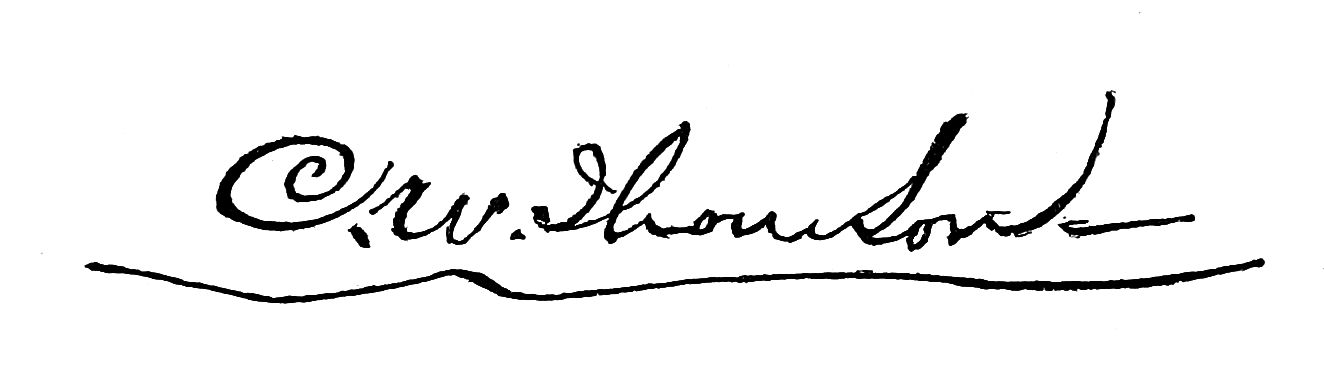 C. W. Thomson